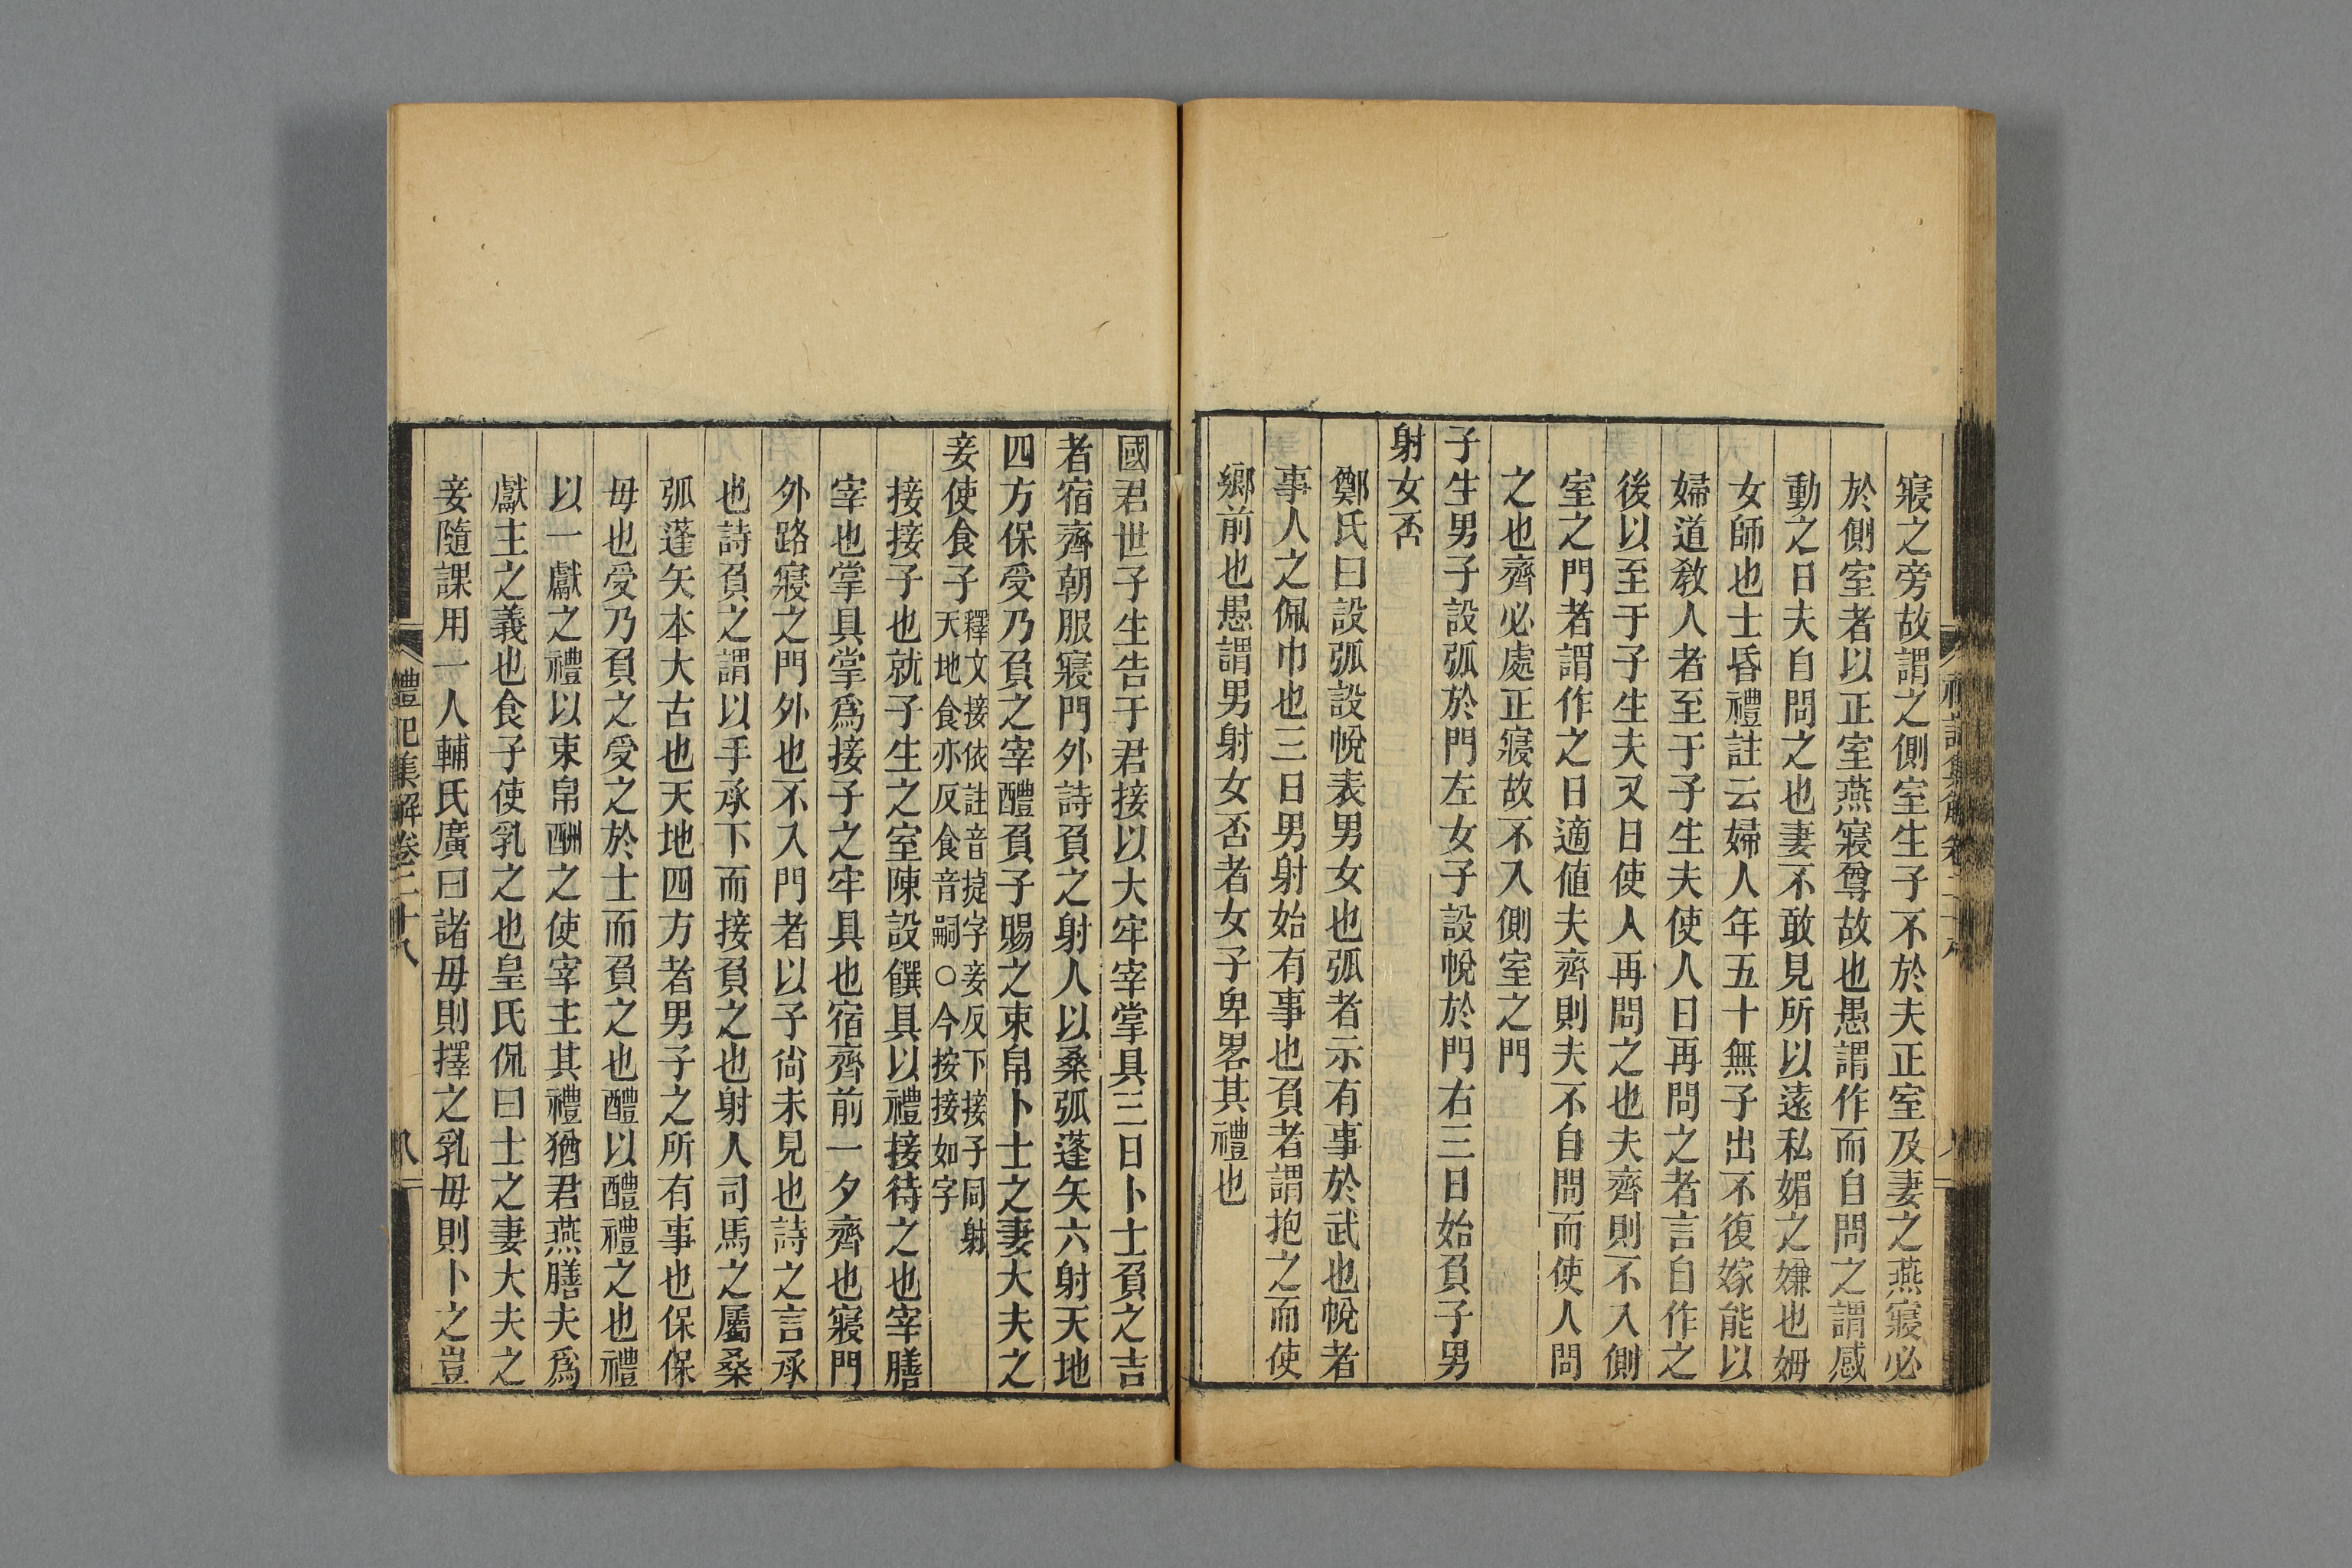 寢之旁故謂之側室生子不於夫正室及妻之燕寢必
於側室者以正室燕寢尊故也愚謂作而自問之謂感
動之日夫自問之也妻不敢見所以遠私媚之嫌也姆
女師也士昏禮註云婦人年五十無子出不復嫁能以
婦道教人者至于子生夫使人日再問之者言自作之
後以至于子生夫又日使人再問之也夫齊則不入側
室之門者謂作之日適值夫齊則夫不自問而使人問
之也齊必處正寢故不入側室之門
子生男子設弧於門左女子設帨於門右三日始負子男
射女否
鄭氏曰設弧設帨表男女也弧者示有事於武也帨者
事人之佩巾也三日男射始有事也負者謂抱之而使
鄉前也愚謂男射女否者女子卑畧其禮也
國君世子生告于君接以大牢宰掌具三日卜士負之吉
者宿齊朝服寢門外詩負之射人以桑弧蓬矢六射天地
四方保受乃負之宰醴負子賜之束帛卜士之妻大夫之
妾使食子釋文接依註音捷字妾反下接子同射天地食亦反食音嗣○今按接如字
接接子也就子生之室陳設饌具以禮接待之也宰膳
宰也掌具掌爲接子之牢具也宿齊前一夕齊也寢門
外路寢之門外也不入門者以子尙未見也詩之言承
也詩負之謂以手承下而接負之也射人司馬之屬桑
弧蓬矢本大古也天地四方者男子之所有事也保保
毋也受乃負之受之於士而負之也醴以醴禮之也禮
以一獻之禮以束帛酬之使宰主其禮猶君燕膳夫爲
獻主之義也食子使乳之也皇氏侃曰士之妻大夫之
妾隨課用一人輔氏廣曰諸毋則擇之乳毋則卜之豈
禮記集解卷二十八
八